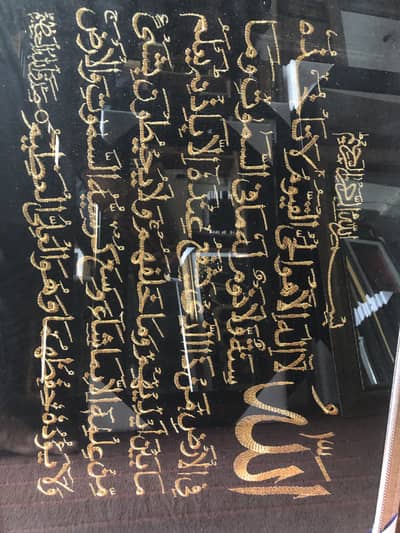 بسم الله الرحمن الرحيم
الله لا اله الا هو الحي القيوم لا تأخذه
سنة ولا نوم له ما في السموت وما
في الارض من ذا الذي يشفع عنده الا باذنه يعلم
ما بين ايديهم وما خلفهم ولا يحيطون بشئ
من علمه الا بما شاء وسع كرسيه السموت والارض
ولا يؤده حفظهما وهو العلي العظيم صدق الله العظيم